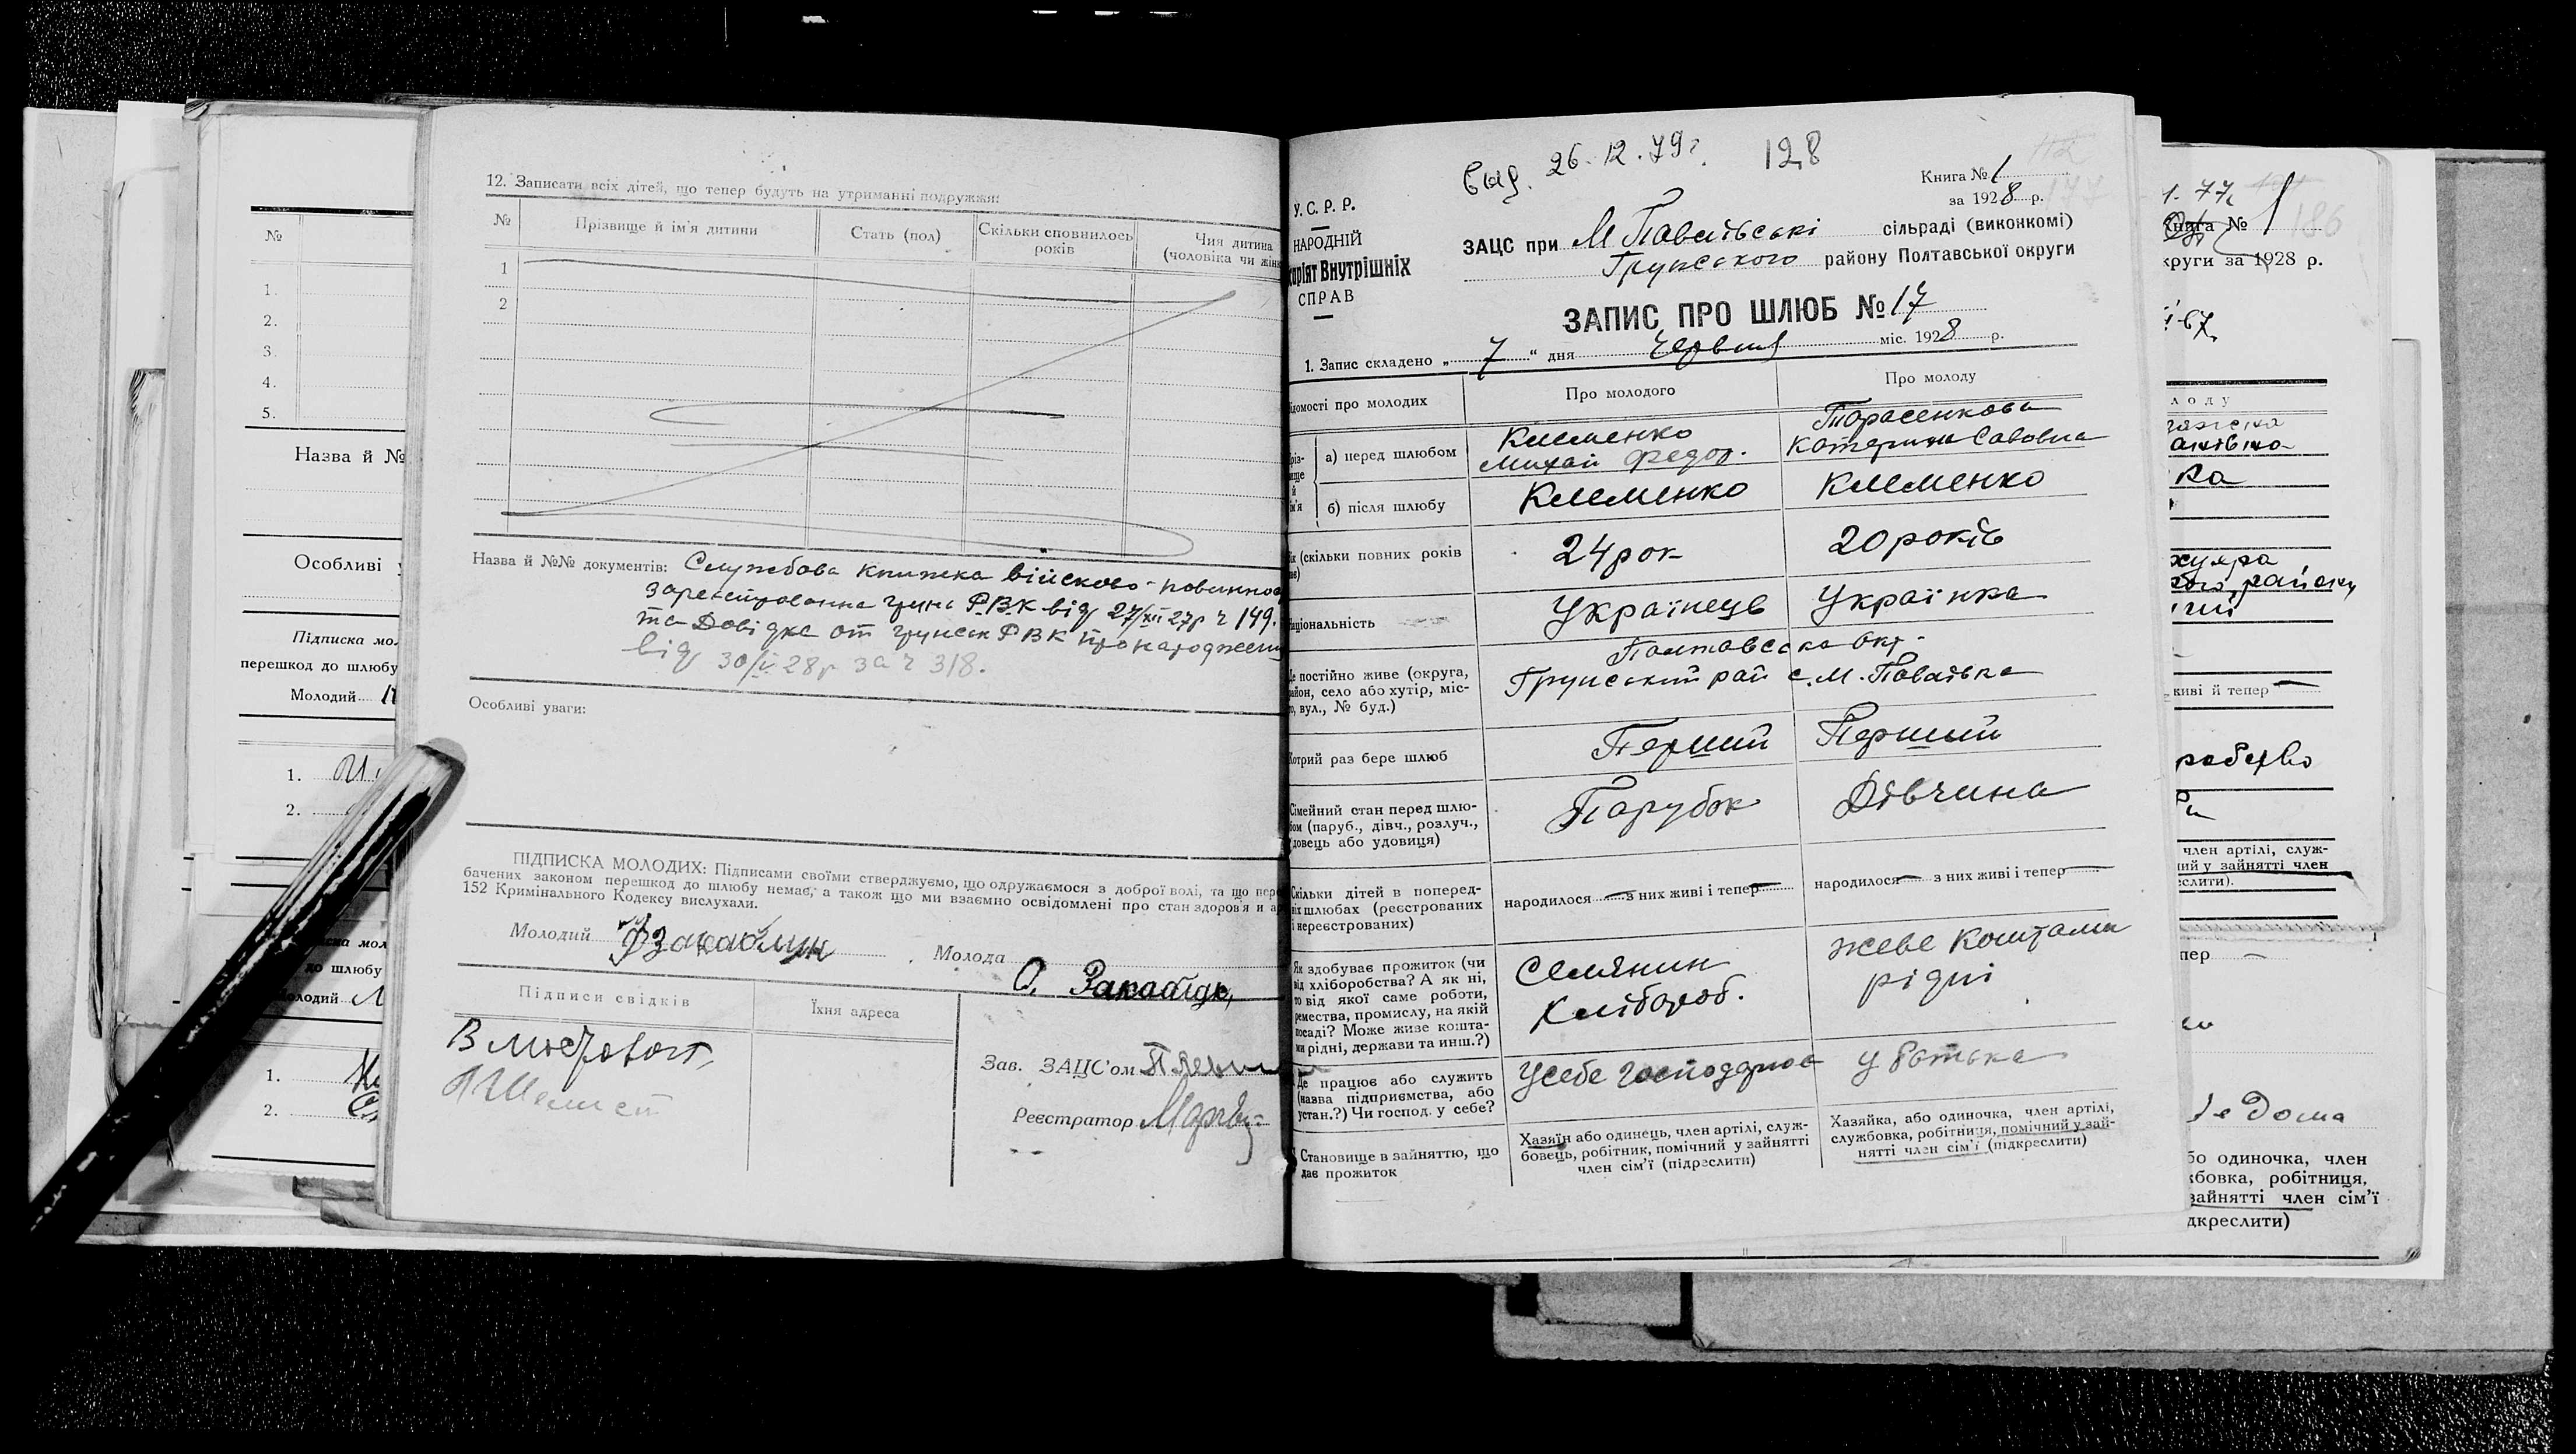 12. Записати всіх дітей, що тепер будуть на утриманні подружжя:
№ Прізвище й ім'я дитини Стать (пол) Скільки сповнилось років Чия дитина (чоловіка чи жін
1
2
Назва й №№ документів: Службова книжка військово-повинно
зареєстрована грунь Р.В.К від 27/XII 27р ч 149.
та Довідка от грунськ РВК про народжени
від 30/V 28р за ч 318.
Особливі уваги:
ПІДПИСКА МОЛОДИХ: Підписами своїми стверджуємо, що одружаємося з доброї волі, та що пере
бачених законом перешкод до шлюбу немає, а також що ми взаємно освідомлені про стан здоров'я и
152 Кримінального Кодексу вислухали.
Молодий Молода
Підписи свідків Їхня адреса
Зав. ЗАЦС'ом
Реєстратор
№
1.
2.
3.
4.
5.
Назва й №
Особливі
Підписка мол
перешкод до шлюбу
Молодий
1.
2.
до шлюбу
1.
2.
Выд. 26.12.79г. 128
У.С.Р.Р.
НАРОДНІЙ
Внутрішніх
СПРАВ
Книга № 1
за 1928 р.
ЗАЦС при М Павлівські сільраді (виконкомі)
Грунського району Полтавської округи
ЗАПИС ПРО ШЛЮБ № 17
1. Запис складено „ 7 “ дня Червня міс. 1928 р.
домості про молодих Про молодого Про молоду
а) перед шлюбом Клеменко Михай Федор. Тарасенкова Катерина Савовна
б) після шлюбу Клеменко Клеменко
(скільки повних років 24 рок 20 років
ціональність Українець Українка
Де постійно живе (округа, район, село або хутір, міс-
то, вул., № буд.) Полтавська окр.
Грунський рай с. М. Павлівка
Котрий раз бере шлюб Перший Перший
Сімейний стан перед шлю-
бом (паруб., дівч., розлуч.,
удовець або удовиця) Парубок Дівчина
Скільки дітей в поперед-
ніх шлюбах (реєстрованих
і нереєстрованих) народилося — з них живі і тепер — народилося — з них живі і тепер —
Як здобуває прожиток (чи
від хліборобства? А як ні,
то від якої саме роботи,
ремества, промислу, на якій
посаді? Може живе кошта-
ми рідні, держави та инш.?) Селянин Хлібороб. жеве коштами рідні
Де працює або служить
(назва підприємства, або
устан.?) Чи господ. у себе? У себе господарює у батька
Становище в зайняттю, що
дає прожиток
Хазяїн або одинець, член артілі, служ-
бовець, робітник, помічний у зайнятті
член сім'ї (підреслити)
Хазяйка, або одиночка, член артілі,
службовка, робітниця, помічний у зай-
нятті член сім'ї (підкреслити)
1.77
Книга № 1
186
округи за 1928 р.
лоду
ка
живі й тепер —
член артілі, служ-
ний у зайнятті член
еслити).
пер —
дома
бо одиночка, член
жбовка, робітниця,
зайнятті член сім'ї
дкреслити)